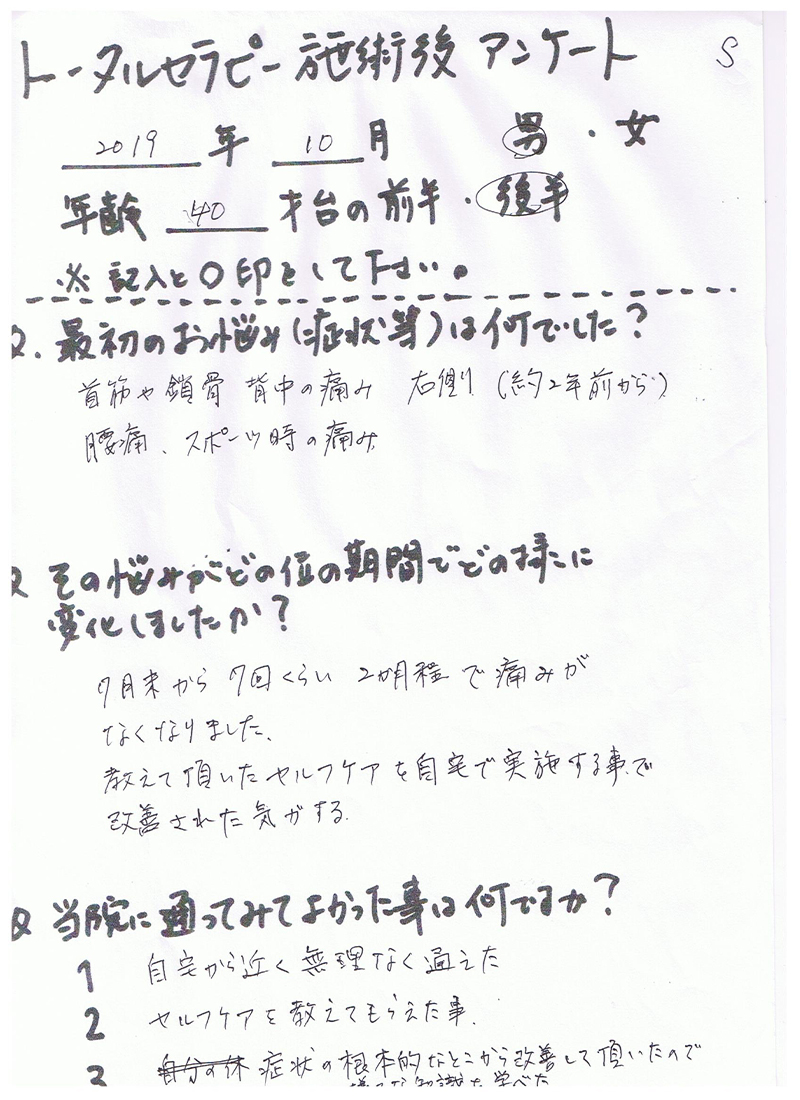 トータルセラピー施術後アンケート
S
2019年 10月 男・女
年齢 40 才台の前半・後半
※記入と〇印をして下さい。
Q.最初のお悩み(症状等)は何でした?
首筋や鎖骨 背中の痛み 右側(約2年前から)
腰痛、スポーツ時の痛み
Q その悩みがどの位の期間でどの様に
変化しましたか?
7月末から7回くらい 2か月程で痛みが
なくなりました。
教えて頂いたセルフケアを自宅で実施する事で
改善された気がする。
Q 当院に通ってみてよかった事は何ですか?
1 自宅から近く無理なく通えた
2 セルフケアを教えてもらえた事。
3 自分の体 症状の根本的なところから改善して頂いたので
知識も学べた